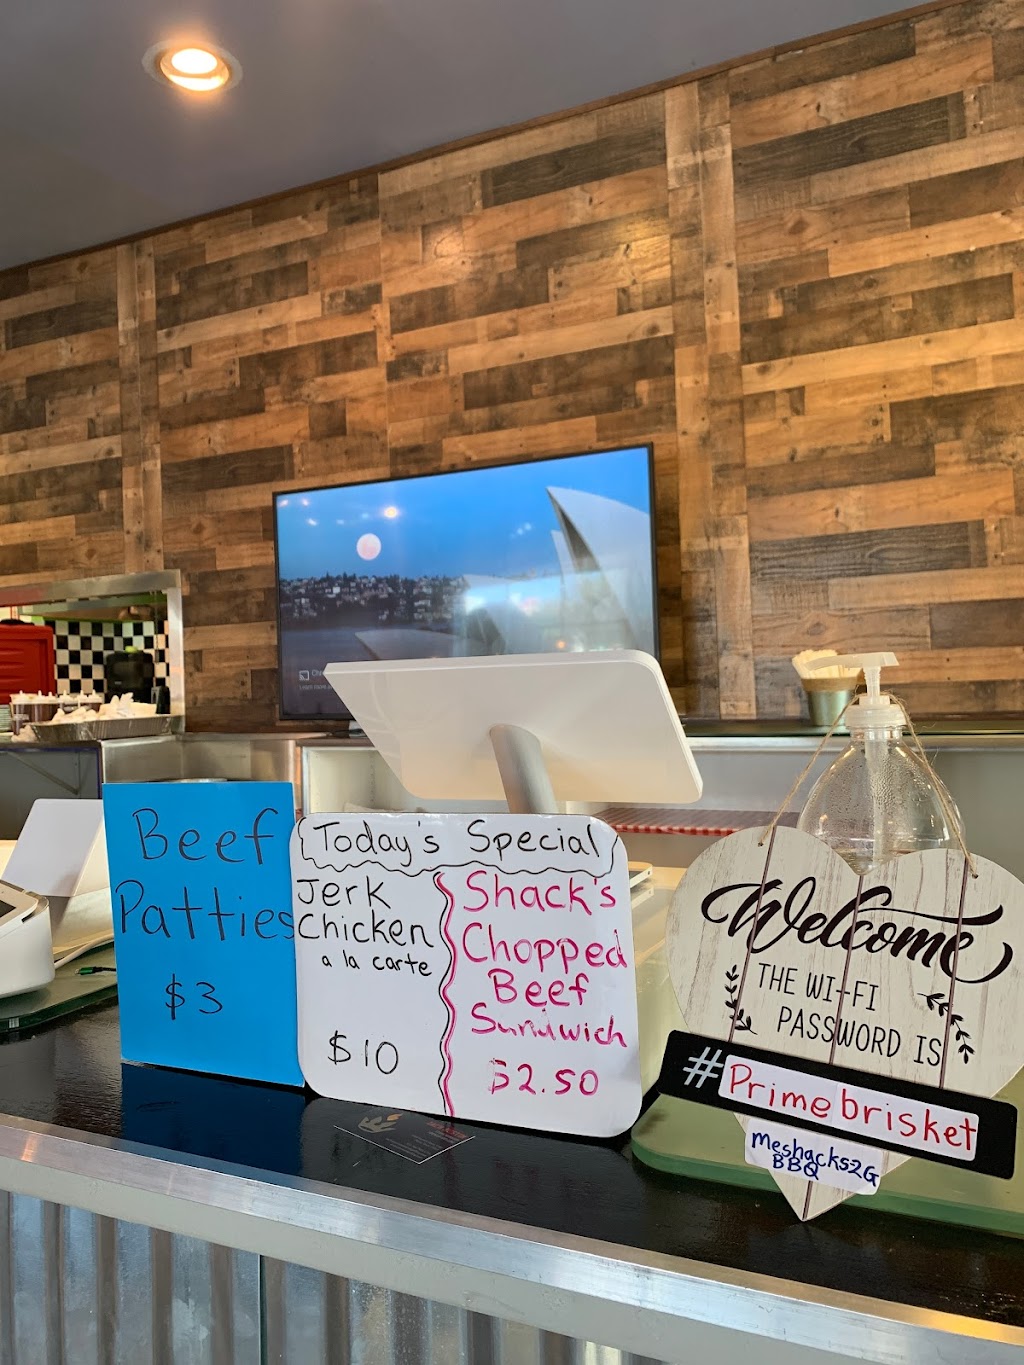 Beef
Patties
$3
Today's Special
Jerk
Chicken
a la carte
$10
Shack's
Chopped
Beef
Sandwich
$2.50
Welcome
THE WI-FI
PASSWORD IS
#Primebrisket
Meshacks2G
BBQ